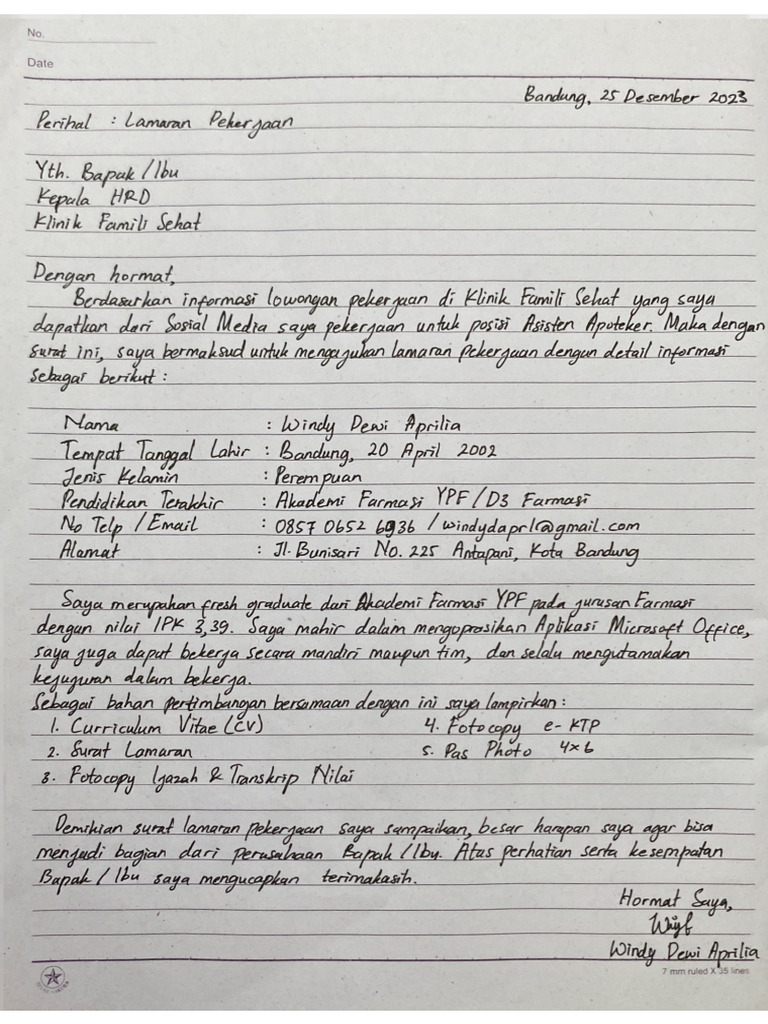 No.
Date
Bandung, 25 Desember 2023
Perihal : Lamaran Pekerjaan
Yth. Bapak/Ibu
Kepala HRD
Klinik Famili Sehat
Dengan hormat,
Berdasarkan informasi lowongan pekerjaan di Klinik Famili Sehat yang saya
dapatkan dari Sosial Media saya pekerjaan untuk posisi Asisten Apoteker. Maka dengan
surat ini, saya bermaksud untuk mengajukan lamaran pekerjaan dengan detail informasi
sebagai berikut :
Nama : Windy Dewi Aprilia
Tempat Tanggal Lahir : Bandung, 20 April 2002
Jenis Kelamin : Perempuan
Pendidikan Terakhir : Akademi Farmasi YPF/D3 Farmasi
No Telp/Email : 0857 0652 6936 /windydaprl@gmail.com
Alamat : Jl. Bunisari No. 225 Antapani, Kota Bandung
Saya merupakan fresh graduate dari Akademi Farmasi YPF pada jurusan Farmasi
dengan nilai IPK 3,39. Saya mahir dalam mengoprosikan Aplikasi Microsoft Office,
saya juga dapat bekerja secara mandiri maupun tim, dan selalu mengutamakan
kejujuran dalam bekerja.
Sebagai bahan pertimbangan bersamaan dengan ini saya lampirkan :
1. Curriculum Vitae (CV) 4. Fotocopy e-KTP
2. Surat Lamaran 5. Pas Photo 4x6
3. Fotocopy Ijazah & Transkrip Nilai
Demikian surat lamaran pekerjaan saya sampaikan, besar harapan saya agar bisa
menjadi bagian dari perusahaan Bapak/Ibu. Atas perhatian serta kesempatan
Bapak/Ibu saya mengucapkan terimakasih.
Hormat Saya,
Windy Dewi Aprilia
7 mm ruled X 35 lines